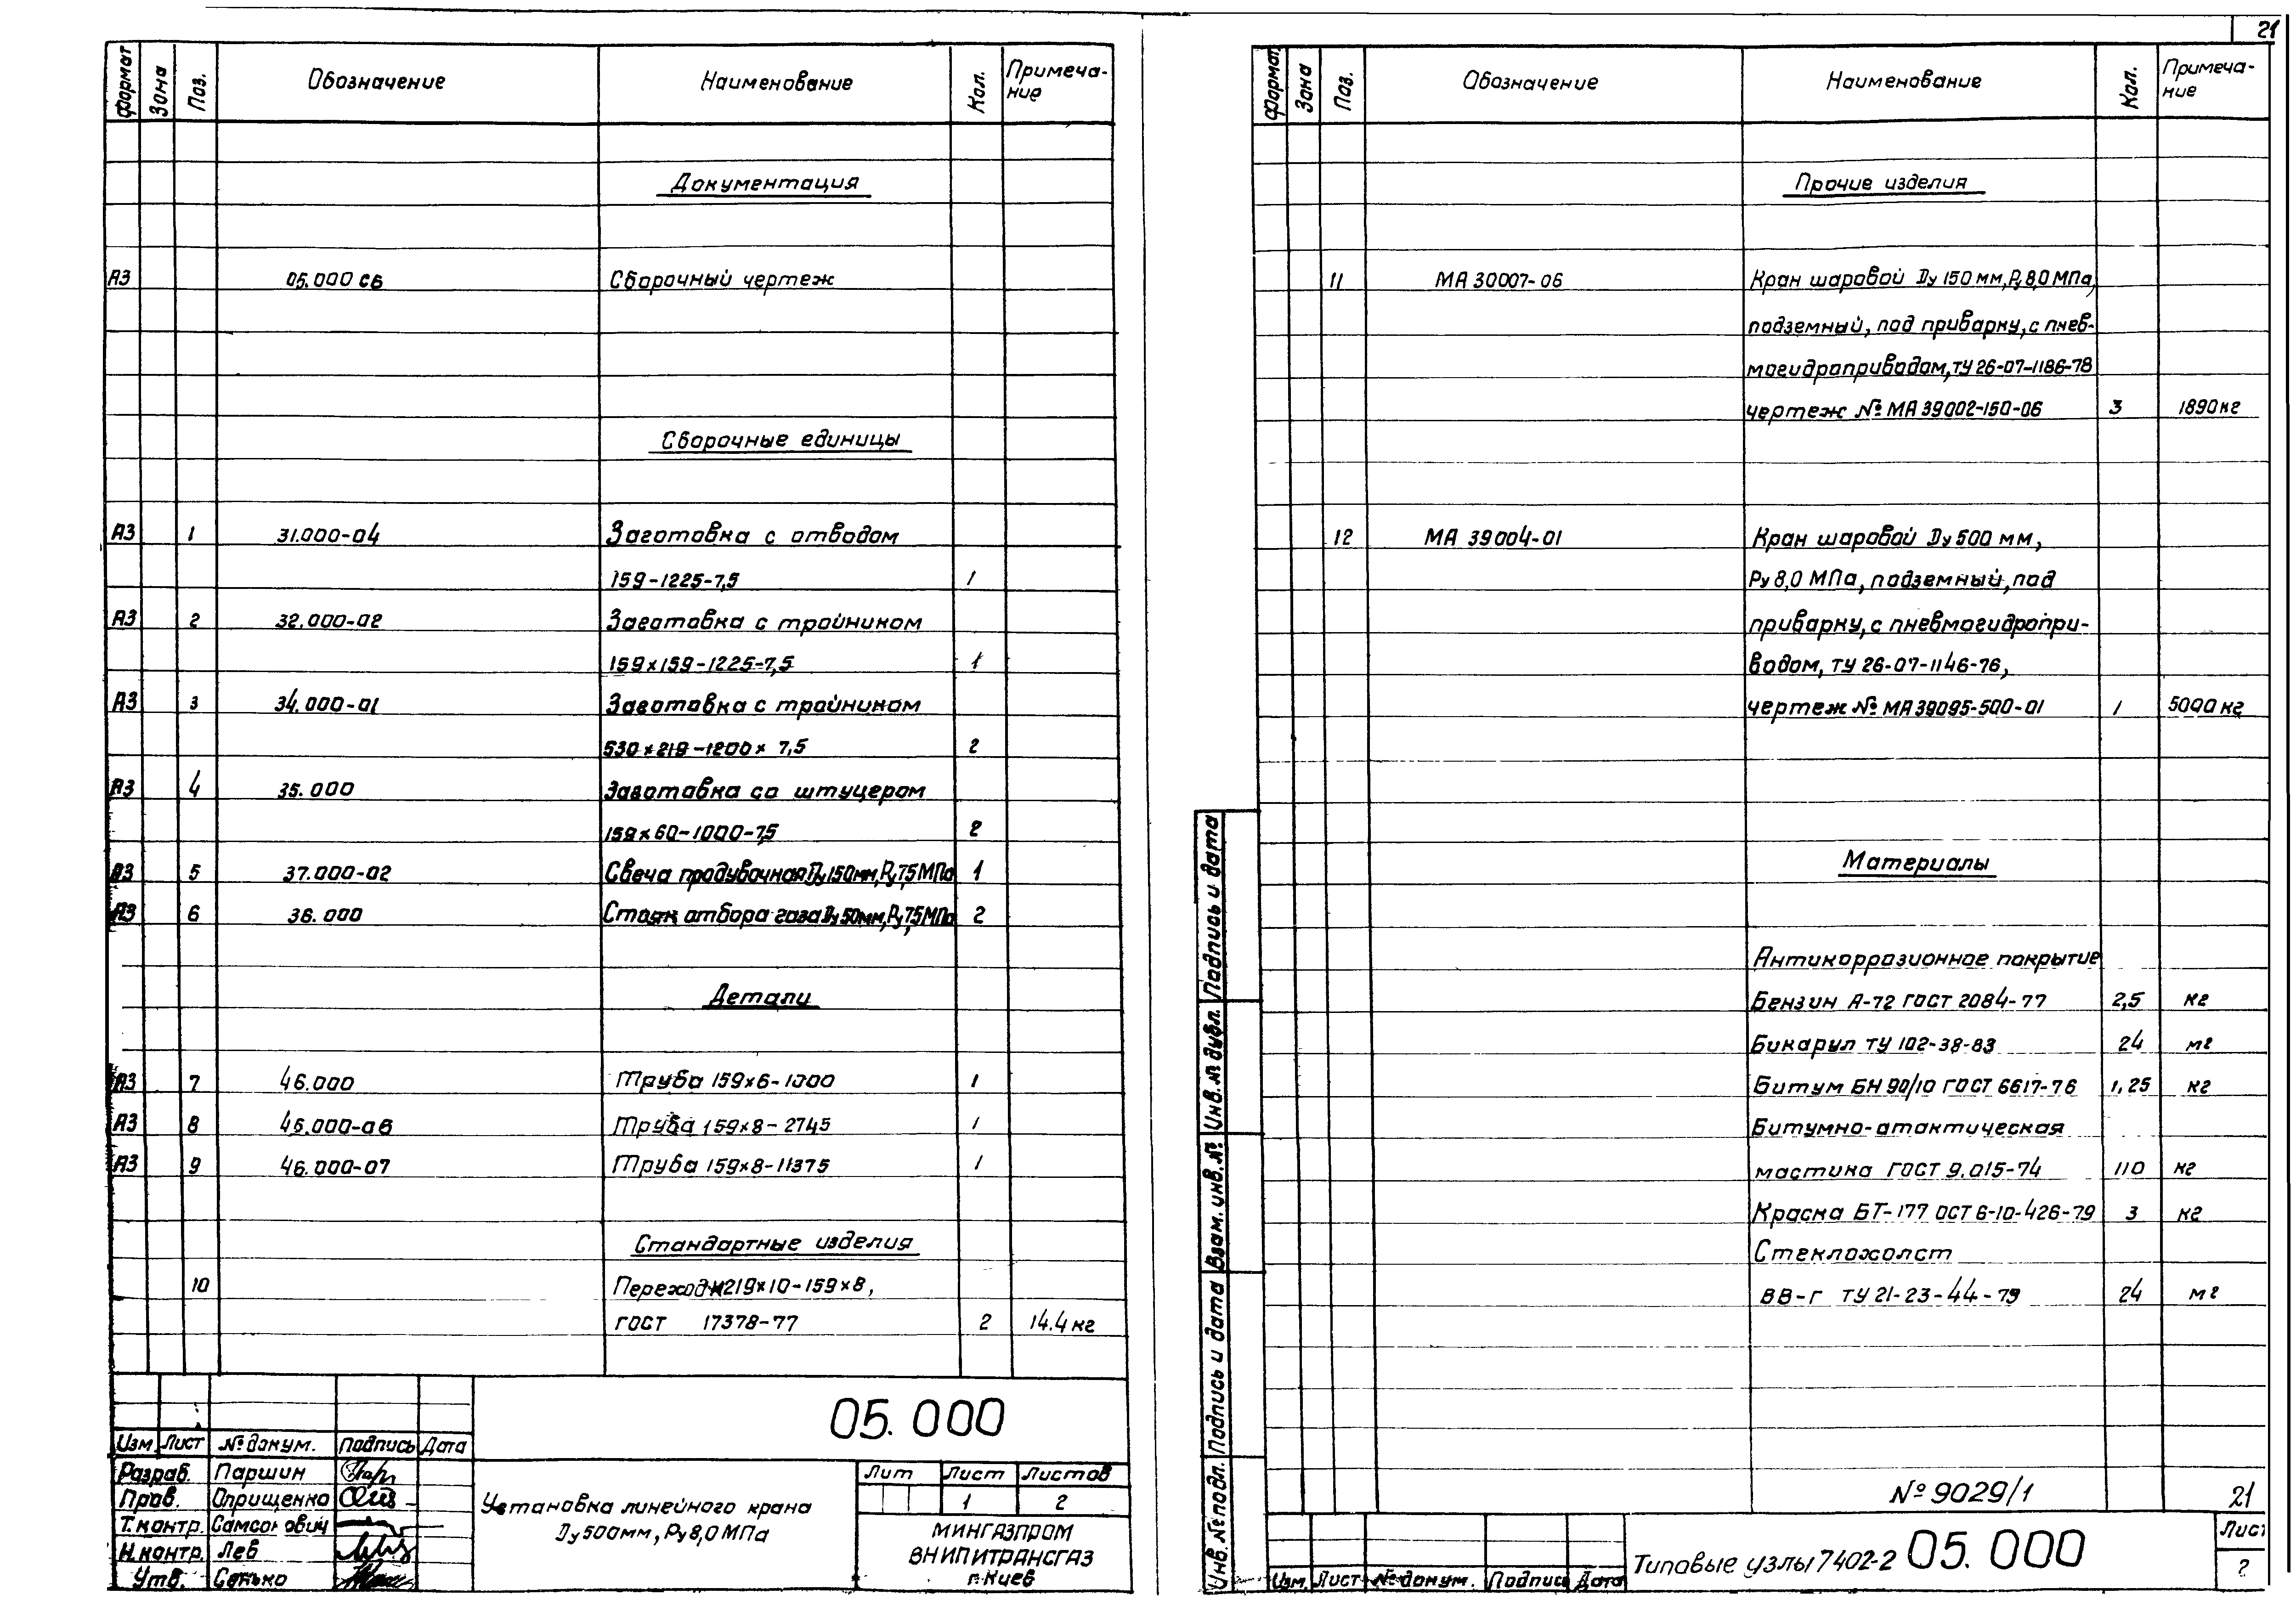 21
Формат Зона Поз. Обозначение Наименование Кол. Примеча-
ние
Документация
А3 05.000 СБ Сборочный чертеж
Сборочные единицы
А3 1 31.000-04 Заготовка с отводом
159-1225-7,5 1
А3 2 32.000-02 Заготовка с тройником
159×159-1225-7,5 1
А3 3 34.000-01 Заготовка с тройником
530×219-1200× 7,5 2
А3 4 35.000 Заготовка со штуцером
159×60-1000-7,5 2
А3 5 37.000-02 Свеча продувочная Ду150мм, Ру7,5МПа 1
А3 6 36.000 Стояк отбора газа Ду50мм, Ру7,5МПа 2
Детали
А3 7 46.000 Труба 159×6-1000 1
А3 8 46.000-06 Труба 159×8-2745 1
А3 9 46.000-07 Труба 159×8-11375 1
Стандартные изделия
10 Переход К219×10-159×8,
ГОСТ 17378-77 2 14.4 кг
05.000
Изм. Лист № докум. Подпись Дата
Разраб. Паршин
Пров. Оприщенко
Т.контр. Самсонович
Н.контр. Лев
Утв. Сенько
Установка линейного крана
Ду500мм, Ру8,0МПа
Лит Лист Листов
1 2
МИНГАЗПРОМ
ВНИПИТРАНСГАЗ
г.Киев
Формат Зона Поз. Обозначение Наименование Кол. Примеча-
ние
Прочие изделия
11 МА 30007-06 Кран шаровой Ду 150 мм, Ру 8,0 МПа,
подземный, под приварку, с пнев-
могидроприводом, ТУ 26-07-1186-78
чертеж № МА 39002-150-06 3 1890 кг
12 МА 39004-01 Кран шаровой Ду 500 мм,
Ру 8,0 МПа, подземный, под
приварку, с пневмогидропри-
водом, ТУ 26-07-1146-76,
чертеж № МА 39095-500-01 1 5000 кг
Материалы
Антикоррозионное покрытие
Бензин А-72 ГОСТ 2084-77 2,5 кг
Бикарул ТУ 102-38-83 24 м2
Битум БН 90/10 ГОСТ 6617-76 1,25 кг
Битумно-атактическая
мастика ГОСТ 9.015-74 110 кг
Краска БТ-177 ОСТ 6-10-426-79 3 кг
Стеклохолст
ВВ-Г ТУ 21-23-44-79 24 м2
№ 9029/1 21
Инв. № подл. Подпись и дата Взам. инв. № Инв. № дубл. Подпись и дата
Изм. Лист № докум. Подпись Дата
Типовые узлы 7402-2 05.000
Лист
2